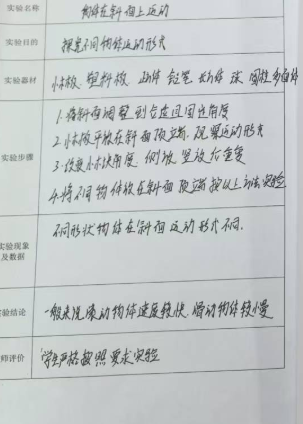 实验名称 物体在斜面上运动
实验目的 探究不同物体运动形式
实验器材 小木板、塑料板、正方体 铅笔 长方体 球 圆柱 多面体
实验步骤
1.将斜面调整到合适固定角度
2.小木块平放在斜面顶端,观察运动形式
3.改变小木块角度,侧放 竖放后重复
4.将不同物体放在斜面顶端按以上方法实验
实验现象
及数据
不同形状物体在斜面运动形式不同.
实验结论 一般来说滚动物体速度较快,滑动物体较慢
师评价 学生严格按照要求实验